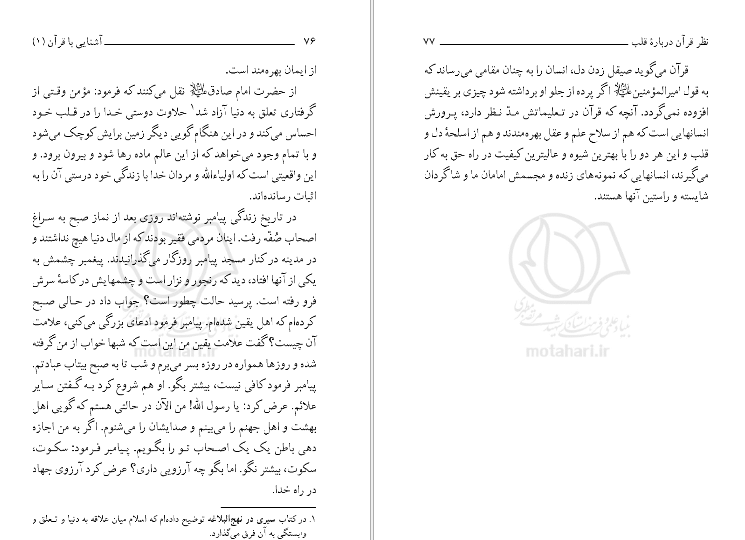 ۷۶ آشنایی با قرآن (۱)
از ایمان بهره‌مند است.
از حضرت امام صادق نقل می‌کنند که فرمود: مؤمن وقتی از
گرفتاری تعلق به دنیا آزاد شد۱ حلاوت دوستی خدا را در قلب خود
احساس می‌کند و در این هنگام گویی دیگر زمین برایش کوچک می‌شود
و با تمام وجود می‌خواهد که از این عالم ماده رها شود و بیرون برود. و
این واقعیتی است که اولیاءالله و مردان خدا با زندگی خود درستی آن را به
اثبات رسانده‌اند.
در تاریخ زندگی پیامبر نوشته‌اند روزی بعد از نماز صبح به سراغ
اصحاب صُفّه رفت. اینان مردمی فقیر بودند که از مال دنیا هیچ نداشتند و
در مدینه در کنار مسجد پیامبر روزگار می‌گذرانیدند. پیغمبر چشمش به
یکی از آنها افتاد، دید که رنجور و نزار است و چشمهایش در کاسهٔ سرش
فرو رفته است. پرسید حالت چطور است؟ جواب داد در حالی صبح
کرده‌ام که اهل یقین شده‌ام. پیامبر فرمود ادعای بزرگی می‌کنی، علامت
آن چیست؟ گفت علامت یقین من این است که شبها خواب از من گرفته
شده و روزها همواره در روزه بسر می‌برم و شب تا به صبح بیتاب عبادتم.
پیامبر فرمود کافی نیست، بیشتر بگو. او هم شروع کرد به گفتن سایر
علائم. عرض کرد: یا رسول الله! من الآن در حالتی هستم که گویی اهل
بهشت و اهل جهنم را می‌بینم و صدایشان را می‌شنوم. اگر به من اجازه
دهی باطن یک یک اصحاب تو را بگویم. پیامبر فرمود: سکوت،
سکوت، بیشتر نگو. اما بگو چه آرزویی داری؟ عرض کرد آرزوی جهاد
در راه خدا.
۱. در کتاب سیری در نهج‌البلاغه توضیح داده‌ام که اسلام میان علاقه به دنیا و تعلق و
وابستگی به آن فرق می‌گذارد.
motahari.ir
نظر قرآن دربارهٔ قلب ۷۷
قرآن می‌گوید صیقل زدن دل، انسان را به چنان مقامی می‌رساند که
به قول امیرالمؤمنین اگر پرده از جلو او برداشته شود چیزی بر یقینش
افزوده نمی‌گردد. آنچه که قرآن در تعلیماتش مدّ نظر دارد، پرورش
انسانهایی است که هم از سلاح علم و عقل بهره‌مندند و هم از اسلحهٔ دل و
قلب و این هر دو را با بهترین شیوه و عالیترین کیفیت در راه حق به کار
می‌گیرند، انسانهایی که نمونه‌های زنده و مجسمش امامان ما و شاگردان
شایسته و راستین آنها هستند.
motahari.ir